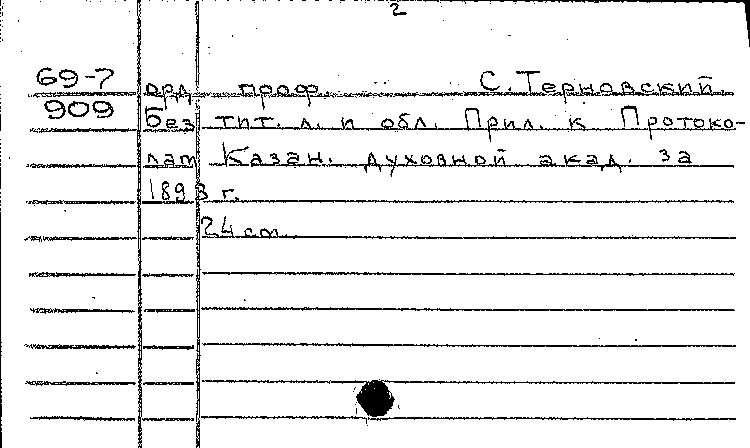 2
69-7 орд. проф. С. Терновский.
909 Без тит. л. и обл. Прил. к Протоко-
лам Казан. духовной акад. за
1893 г.
24 см.